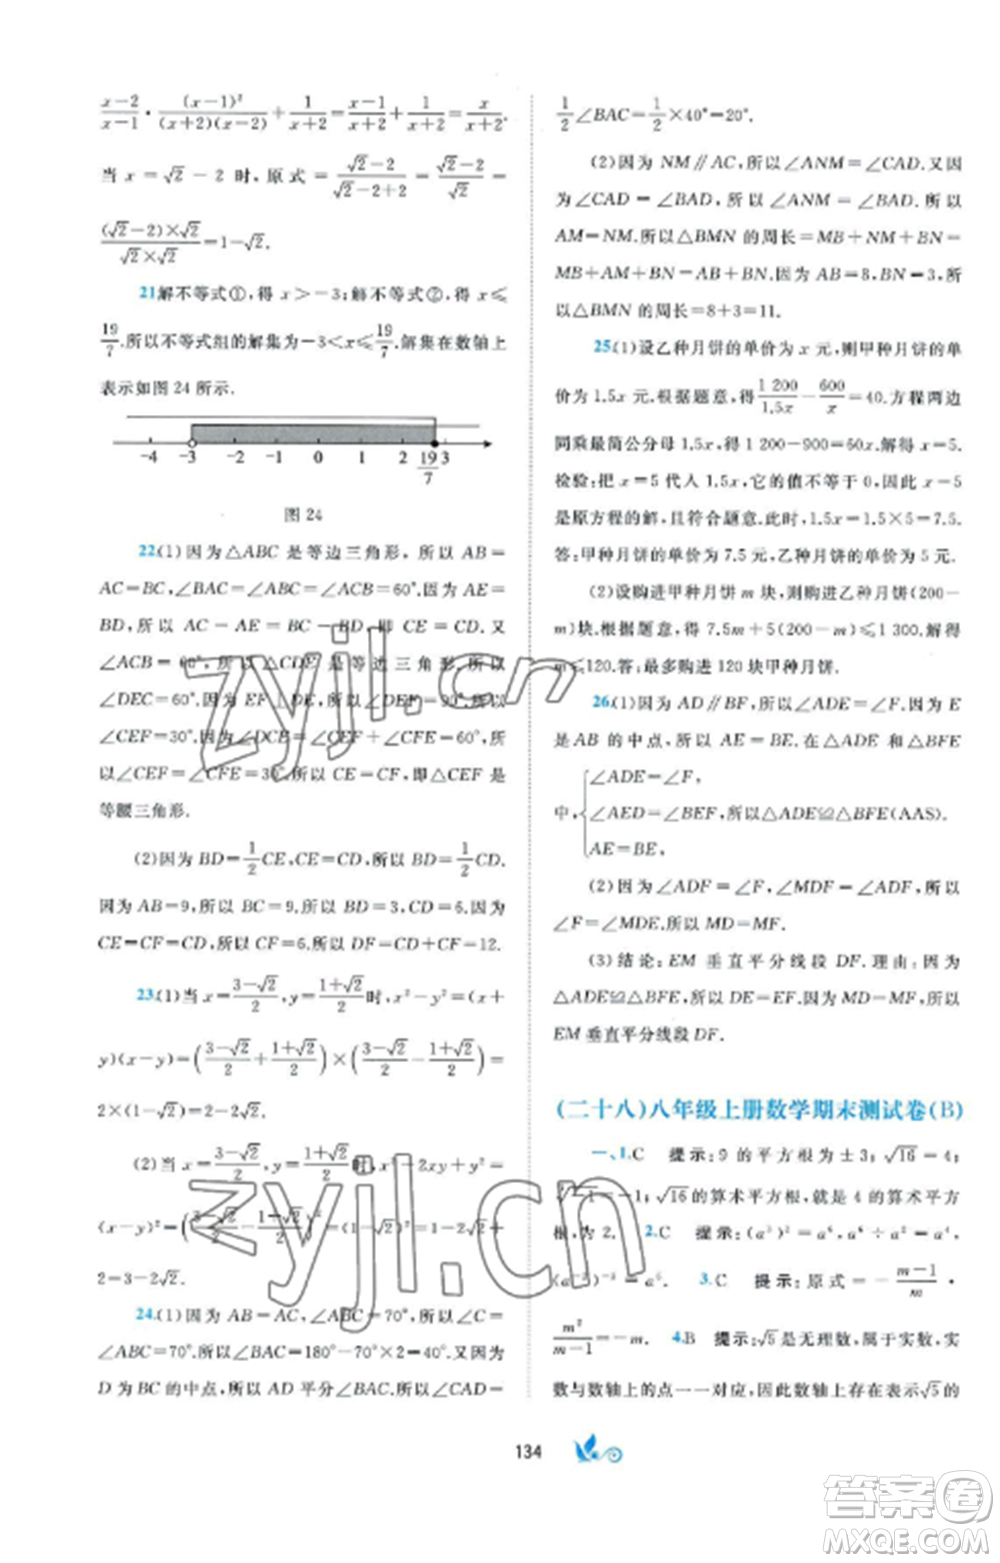 x−2/x−1 · (x−1)²/(x+2)(x−2) + 1/x+2 = x−1/x+2 + 1/x+2 = x/x+2.
当 x = √2 − 2 时, 原式 = √2−2/√2−2+2 = √2−2/√2 =
(√2−2)×√2/√2×√2 = 1−√2.
21解不等式①, 得 x>−3;解不等式②, 得 x≤
19/7.所以不等式组的解集为−3<x≤19/7. 解集在数轴上
表示如图 24 所示.
−4 −3 −2 −1 0 1 2 19/7 3
图 24
22(1)因为△ABC 是等边三角形, 所以 AB=
AC=BC, ∠BAC=∠ABC=∠ACB=60°.因为 AE=
BD, 所以 AC − AE = BC − BD, 即 CE = CD. 又
∠ACB = 60°, 所以 △CDE 是等边三角形. 所以
∠DEC=60°.因为 EF⊥DE, 所以∠DEF=90°.所以
∠CEF=30°.因为∠DCE=∠CEF+∠CFE=60°, 所
以∠CEF=∠CFE=30°.所以 CE=CF, 即△CEF 是
等腰三角形.
(2)因为 BD=1/2CE,CE=CD, 所以 BD=1/2CD.
因为 AB=9, 所以 BC=9. 所以 BD=3,CD=6. 因为
CE=CF=CD,所以 CF=6.所以 DF=CD+CF=12.
23.(1)当 x=3−√2/2,y=1+√2/2时,x²−y²=(x+
y)(x−y)=(3−√2/2+1+√2/2)×(3−√2/2−1+√2/2)=
2×(1−√2)=2−2√2.
(2)当 x=3−√2/2,y=1+√2/2时,x²−2xy+y²=
(x−y)²=(3−√2/2−1+√2/2)²=(1−√2)²=1−2√2+
2=3−2√2.
24.(1)因为 AB=AC,∠ABC=70°,所以∠C=
∠ABC=70°.所以∠BAC=180°−70°×2=40°.又因为
D 为 BC 的中点,所以 AD 平分∠BAC.所以∠CAD=
1/2∠BAC=1/2×40°=20°.
(2)因为 NM∥AC, 所以∠ANM=∠CAD. 又因
为∠CAD=∠BAD, 所以∠ANM=∠BAD. 所以
AM=NM.所以△BMN 的周长=MB+NM+BN=
MB+AM+BN=AB+BN.因为 AB=8,BN=3,所
以△BMN 的周长=8+3=11.
25.(1)设乙种月饼的单价为 x 元,则甲种月饼的单
价为 1.5x 元.根据题意, 得1 200/1.5x−600/x=40.方程两边
同乘最简公分母 1.5x,得 1 200−900=60x.解得 x=5.
检验:把 x=5 代入 1.5x,它的值不等于 0,因此 x=5
是原方程的解,且符合题意. 1.5x=1.5×5=7.5.
答:甲种月饼的单价为 7.5 元,乙种月饼的单价为 5 元.
(2)设购进甲种月饼 m 块,则购进乙种月饼(200−
m)块.根据题意,得 7.5m+5(200−m)≤1 300.解得
m≤120.答:最多购进 120 块甲种月饼.
26.(1)因为 AD∥BF,所以∠ADE=∠F.因为 E
是AB 的中点,所以 AE=BE.在△ADE 和△BFE
∠ADE=∠F,
中,{∠AED=∠BEF,所以△ADE≌△BFE(AAS).
AE=BE,
(2)因为∠ADF=∠F,∠ADF=∠MDF,所以
∠F=∠MDE.所以 MD=MF.
(3)结论:EM 垂直平分线段 DF.理由:因为
△ADE≌△BFE,所以 DE=EF.因为 MD=MF,所以
EM 垂直平分线段 DF.
(二十八)八年级上册数学期末测试卷(B)
一、1.C 提示:9 的平方根为±3;√16=4;
∛−1=−1;√16的算术平方根,就是 4 的算术平方
根,为 2. 2.C 提示:(a³)²=a⁶,a⁶÷a²=a⁴,
3.C 提示:原式=−m−1/m·
m²/m−1=−m. 4.B 提示:√5是无理数,属于实数,实
数与数轴上的点一一对应,因此数轴上存在表示√5的
134
zyjl.cn
zyjl.cn
答案圈
MXQE.COM